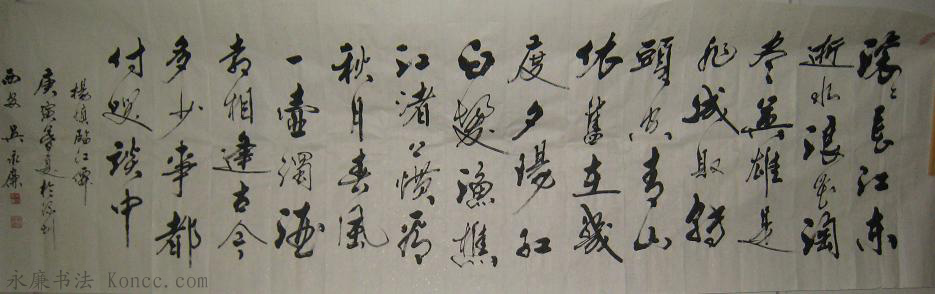 滚滚长江东
逝水浪花淘
尽英雄是
非成败转
頭空青山
依舊在幾
度夕陽红
白髮漁樵
江渚上慣看
秋月春風
一壶濁酒
喜相逢古今
多少事都
付笑談中
楊慎臨江僊
庚寅年夏於深圳
西安吴永廉
永廉书法 Koncc.com